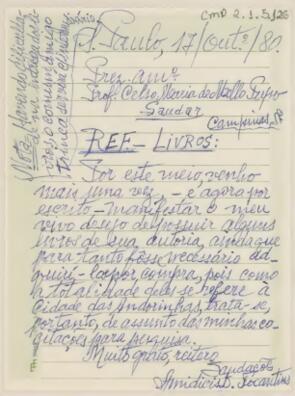 CMD 2.1.5.126
S. Paulo, 17/outº/80.
Prez. amº
Prof. Celso Maria de Mello Pupo
Saudar
Campinas, SP
REF – LIVROS:
Por este meio, venho
mais uma vez, – e agora por
escrito – manifestar o meu
vivo desejo de possuir alguns
livros de sua autoria, ainda que
para tanto fosse necessário ad-
quiri-los por compra, pois como
a totalidade deles se refere à
Cidade das andorinhas, trata-se,
portanto, de assunto das minhas co-
gitações para pesquisa.
Muito grato, reitero
Saudações
Tocantins
Nota: